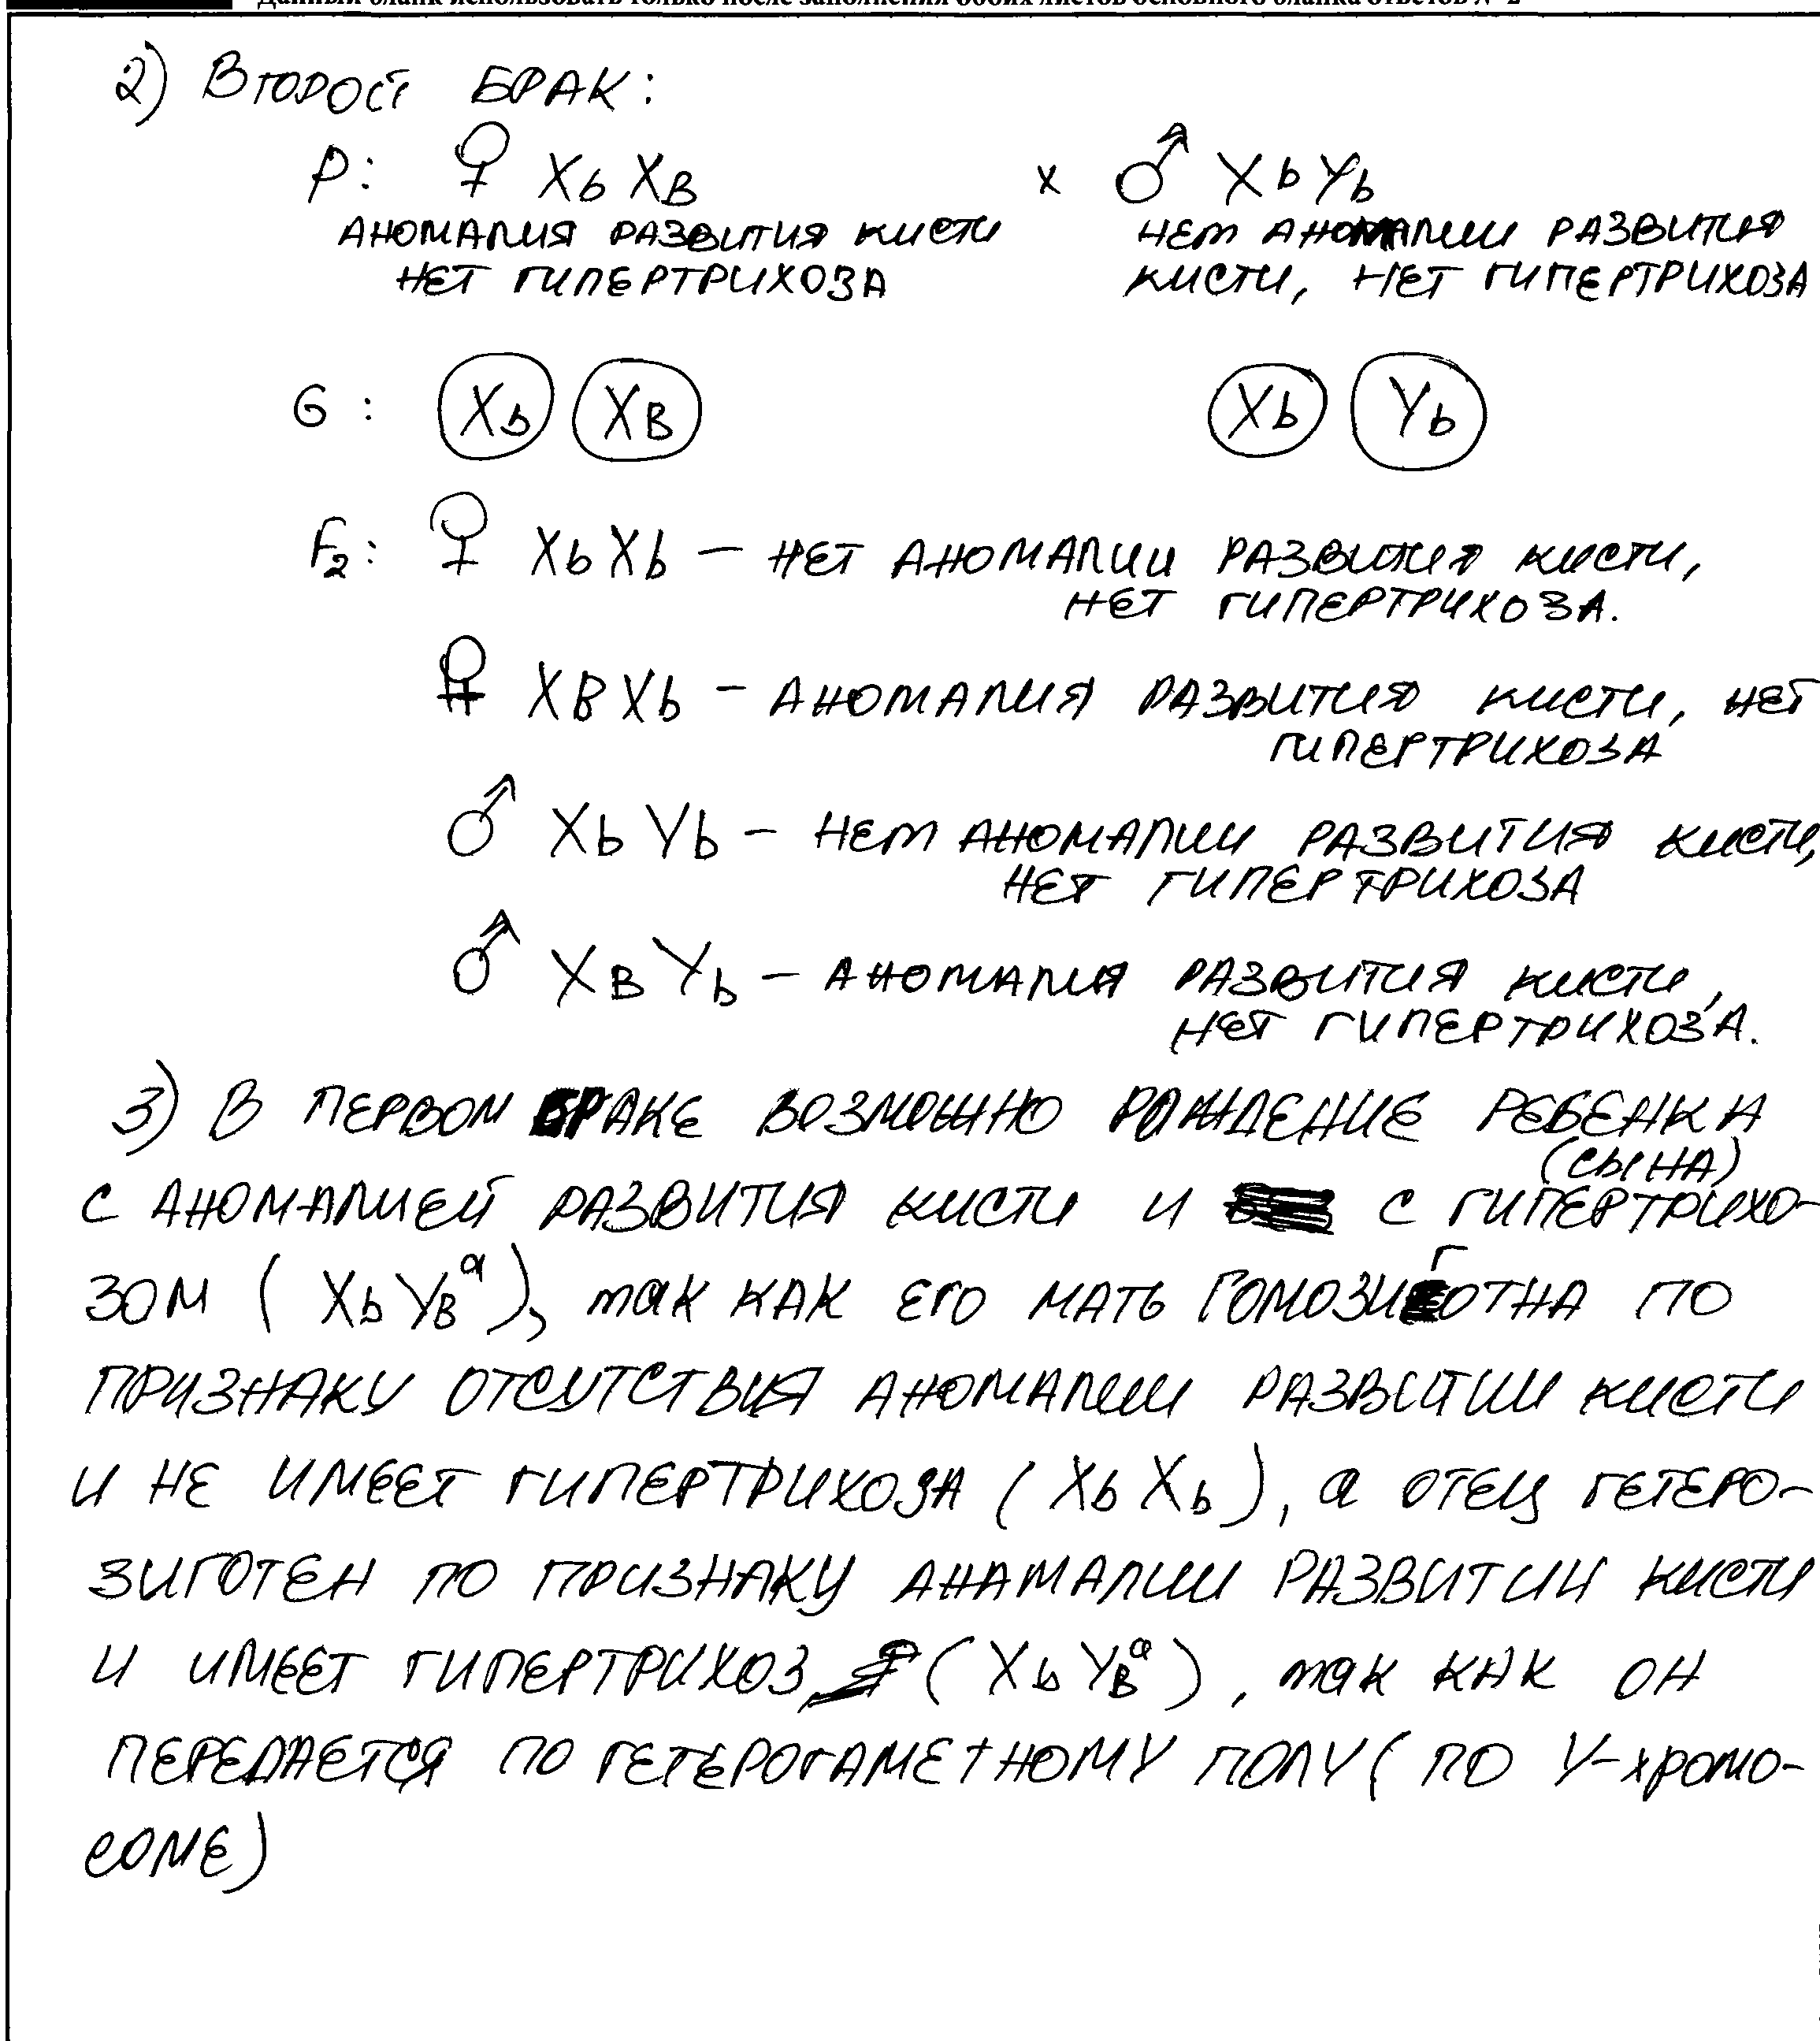 Данный бланк использовать только после заполнения обоих листов основного бланка ответов № 2
2) Второй брак:
P: ♀ Xb XB x ♂ Xb Yb
аномалия развития кисти нет аномалии развития
нет гипертрихоза кисти, нет гипертрихоза
G : Xb XB Xb Yb
F2: ♀ Xb Xb – нет аномалии развития кисти,
нет гипертрихоза.
♀ XB Xb – аномалия развития кисти, нет
гипертрихоза
♂ Xb Yb – нет аномалии развития кисти,
нет гипертрихоза
♂ XB Yb – аномалия развития кисти,
нет гипертрихоза.
3) В первом браке возможно рождение ребенка
(сына)
с аномалией развития кисти и с гипертрихо-
зом ( Xb YB^a ), так как его мать гомозиготна по
признаку отсутствия аномалии развитии кисти
и не имеет гипертрихоза ( Xb Xb ), а отец гетеро-
зиготен по признаку анамалии развитии кисти
и имеет гипертрихоз ( Xb YB^a ), так как он
передается по гетерогаметному полу ( по Y-хромо-
соме)